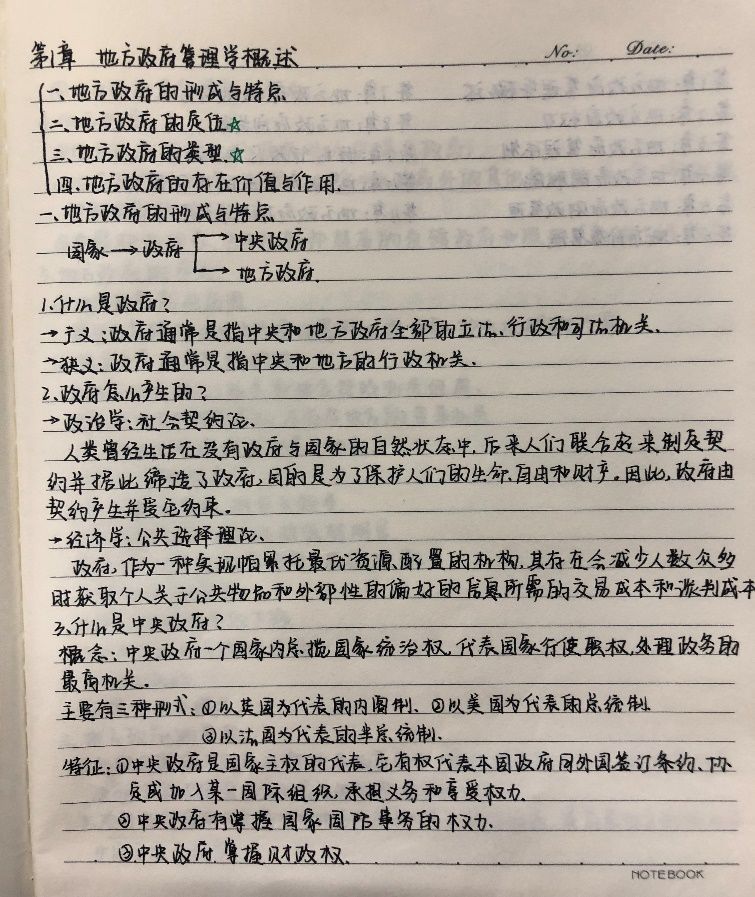 第1章 地方政府管理学概述 No: Date:
一、地方政府的形成与特点
二、地方政府的定位☆
三、地方政府的类型☆
四、地方政府的存在价值与作用.
一、地方政府的形成与特点
国家→政府 中央政府
地方政府.
1.什么是政府?
→广义:政府通常是指中央和地方政府全部的立法、行政和司法机关.
→狭义:政府通常是指中央和地方的行政机关.
2.政府怎么产生的?
→政治学:社会契约论.
人类曾经生活在没有政府与国家的自然状态中,后来人们联合起来制定契
约并据此缔造了政府,目的是为了保护人们的生命、自由和财产。因此,政府由
契约产生并受它约束。
→经济学:公共选择理论.
政府,作为一种实现帕累托最优资源配置的机构,其存在会减少人数众多
时获取个人关于公共物品和外部性的偏好的信息所需的交易成本和谈判成本
3.什么是中央政府?
概念:中央政府一个国家内总揽国家统治权,代表国家行使职权,处理政务的
最高机关。
主要有三种形式:①以英国为代表的内阁制、②以美国为代表的总统制
③以法国为代表的半总统制.
特征:①中央政府是国家主权的代表,它有权代表本国政府同外国签订条约、协
定或加入某一国际组织,承担义务和享受权力.
②中央政府有掌握国家国防事务的权力.
③中央政府掌握财政权.
NOTEBOOK